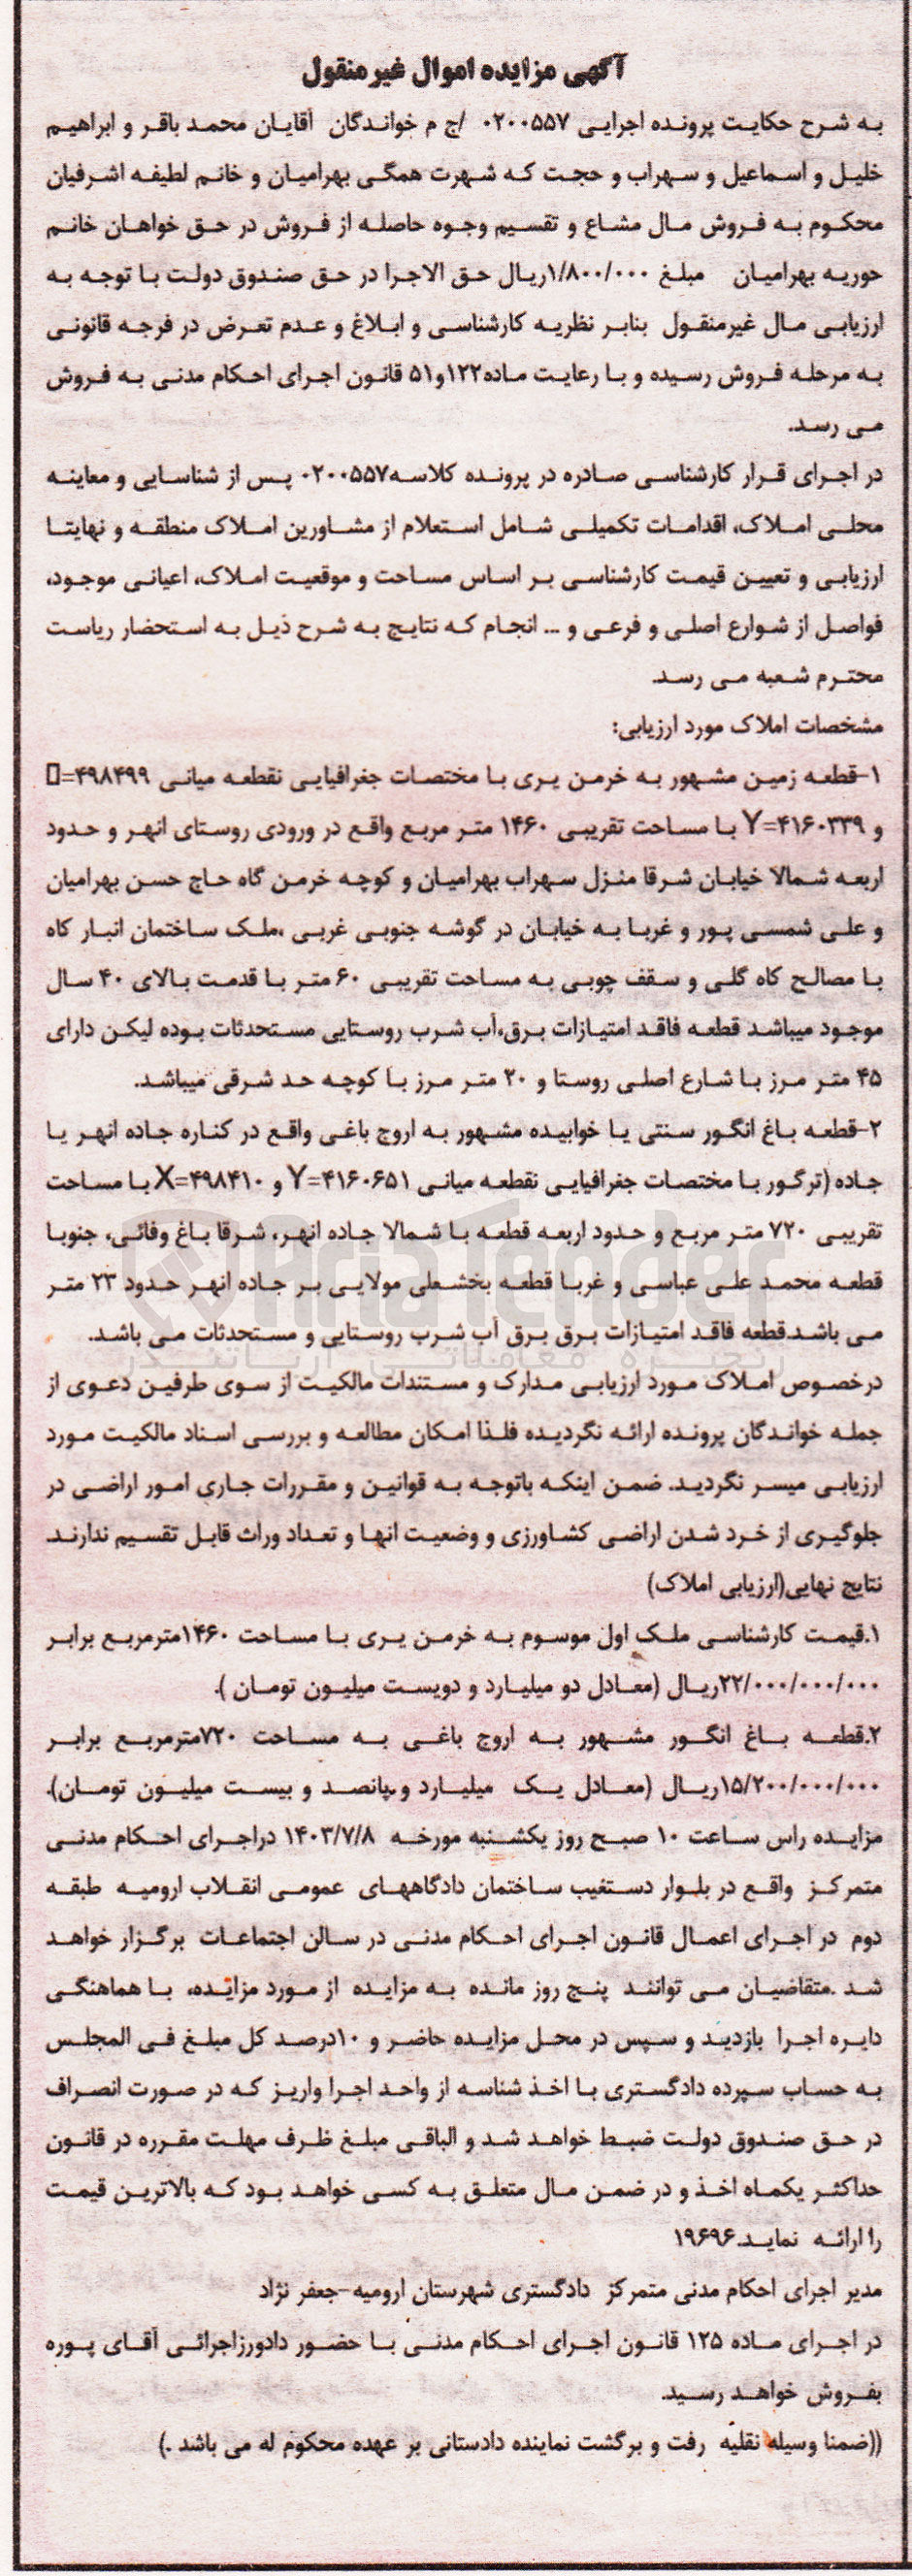 آگهی مزایده اموال غیرمنقول
به شرح حکایت پرونده اجرایی ۰۲۰۰۵۵۷ /ج م خواندگان آقایان محمد باقر و ابراهیم
خلیل و اسماعیل و سهراب و حجت که شهرت همگی بهرامیان و خانم لطیفه اشرفیان
محکوم به فروش مال مشاع و تقسیم وجوه حاصله از فروش در حق خواهان خانم
حوریه بهرامیان مبلغ ۱/۸۰۰/۰۰۰ریال حق الاجرا در حق صندوق دولت با توجه به
ارزیابی مال غیرمنقول بنابر نظریه کارشناسی و ابلاغ و عدم تعرض در فرجه قانونی
به مرحله فروش رسیده و با رعایت ماده۱۲۲و۵۱ قانون اجرای احکام مدنی به فروش
می رسد.
در اجرای قرار کارشناسی صادره در پرونده کلاسه۰۲۰۰۵۵۷ پس از شناسایی و معاینه
محلی املاک، اقدامات تکمیلی شامل استعلام از مشاورین املاک منطقه و نهایتا
ارزیابی و تعیین قیمت کارشناسی بر اساس مساحت و موقعیت املاک، اعیانی موجود،
فواصل از شوارع اصلی و فرعی و ... انجام که نتایج به شرح ذیل به استحضار ریاست
محترم شعبه می رسد.
مشخصات املاک مورد ارزیابی:
۱-قطعه زمین مشهور به خرمن یری با مختصات جغرافیایی نقطعه میانی ۴۹۸۴۹۹=▯
و ۴۱۶۰۳۳۹=Y با مساحت تقریبی ۱۴۶۰ متر مربع واقع در ورودی روستای انهر و حدود
اربعه شمالا خیابان شرقا منزل سهراب بهرامیان و کوچه خرمن گاه حاج حسن بهرامیان
و علی شمسی پور و غربا به خیابان در گوشه جنوبی غربی ،ملک ساختمان انبار کاه
با مصالح کاه گلی و سقف چوبی به مساحت تقریبی ۶۰ متر با قدمت بالای ۴۰ سال
موجود میباشد قطعه فاقد امتیازات برق،آب شرب روستایی مستحدثات بوده لیکن دارای
۴۵ متر مرز با شارع اصلی روستا و ۲۰ متر مرز با کوچه حد شرقی میباشد.
۲-قطعه باغ انگور سنتی یا خوابیده مشهور به اروج باغی واقع در کناره جاده انهر یا
جاده (ترگور با مختصات جغرافیایی نقطعه میانی ۴۱۶۰۶۵۱=Y و ۴۹۸۴۱۰=X با مساحت
تقریبی ۷۲۰ متر مربع و حدود اربعه قطعه با شمالا جاده انهر، شرقا باغ وفائی، جنوبا
قطعه محمد علی عباسی و غربا قطعه بخشعلی مولایی بر جاده انهر حدود ۲۳ متر
می باشد.قطعه فاقد امتیازات برق برق آب شرب روستایی و مستحدثات می باشد.
AriaTender
زنجیره معاملاتی آریاتندر
درخصوص املاک مورد ارزیابی مدارک و مستندات مالکیت از سوی طرفین دعوی از
جمله خواندگان پرونده ارائه نگردیده فلذا امکان مطالعه و بررسی اسناد مالکیت مورد
ارزیابی میسر نگردید. ضمن اینکه باتوجه به قوانین و مقررات جاری امور اراضی در
جلوگیری از خرد شدن اراضی کشاورزی و وضعیت انها و تعداد وراث قابل تقسیم ندارند.
نتایج نهایی(ارزیابی املاک)
۱.قیمت کارشناسی ملک اول موسوم به خرمن یری با مساحت ۱۴۶۰مترمربع برابر
۲۲/۰۰۰/۰۰۰/۰۰۰ریال (معادل دو میلیارد و دویست میلیون تومان ).
۲.قطعه باغ انگور مشهور به اروج باغی به مساحت ۷۲۰مترمربع برابر
۱۵/۲۰۰/۰۰۰/۰۰۰ریال (معادل یک میلیارد و پانصد و بیست میلیون تومان).
مزایده راس ساعت ۱۰ صبح روز یکشنبه مورخه ۱۴۰۳/۷/۸ دراجرای احکام مدنی
متمرکز واقع در بلوار دستغیب ساختمان دادگاههای عمومی انقلاب ارومیه طبقه
دوم در اجرای اعمال قانون اجرای احکام مدنی در سالن اجتماعات برگزار خواهد
شد .متقاضیان می توانند پنج روز مانده به مزایده از مورد مزایده، با هماهنگی
دایره اجرا بازدید و سپس در محل مزایده حاضر و ۱۰درصد کل مبلغ فی المجلس
به حساب سپرده دادگستری با اخذ شناسه از واحد اجرا واریز که در صورت انصراف
در حق صندوق دولت ضبط خواهد شد و الباقی مبلغ ظرف مهلت مقرره در قانون
حداکثر یکماه اخذ و در ضمن مال متعلق به کسی خواهد بود که بالاترین قیمت
را ارائه نماید.۱۹۶۹۶
مدیر اجرای احکام مدنی متمرکز دادگستری شهرستان ارومیه-جعفر نژاد
در اجرای ماده ۱۲۵ قانون اجرای احکام مدنی با حضور دادورزاجرائی آقای پوره
بفروش خواهد رسید.
((ضمنا وسیله نقلیه رفت و برگشت نماینده دادستانی بر عهده محکوم له می باشد .)